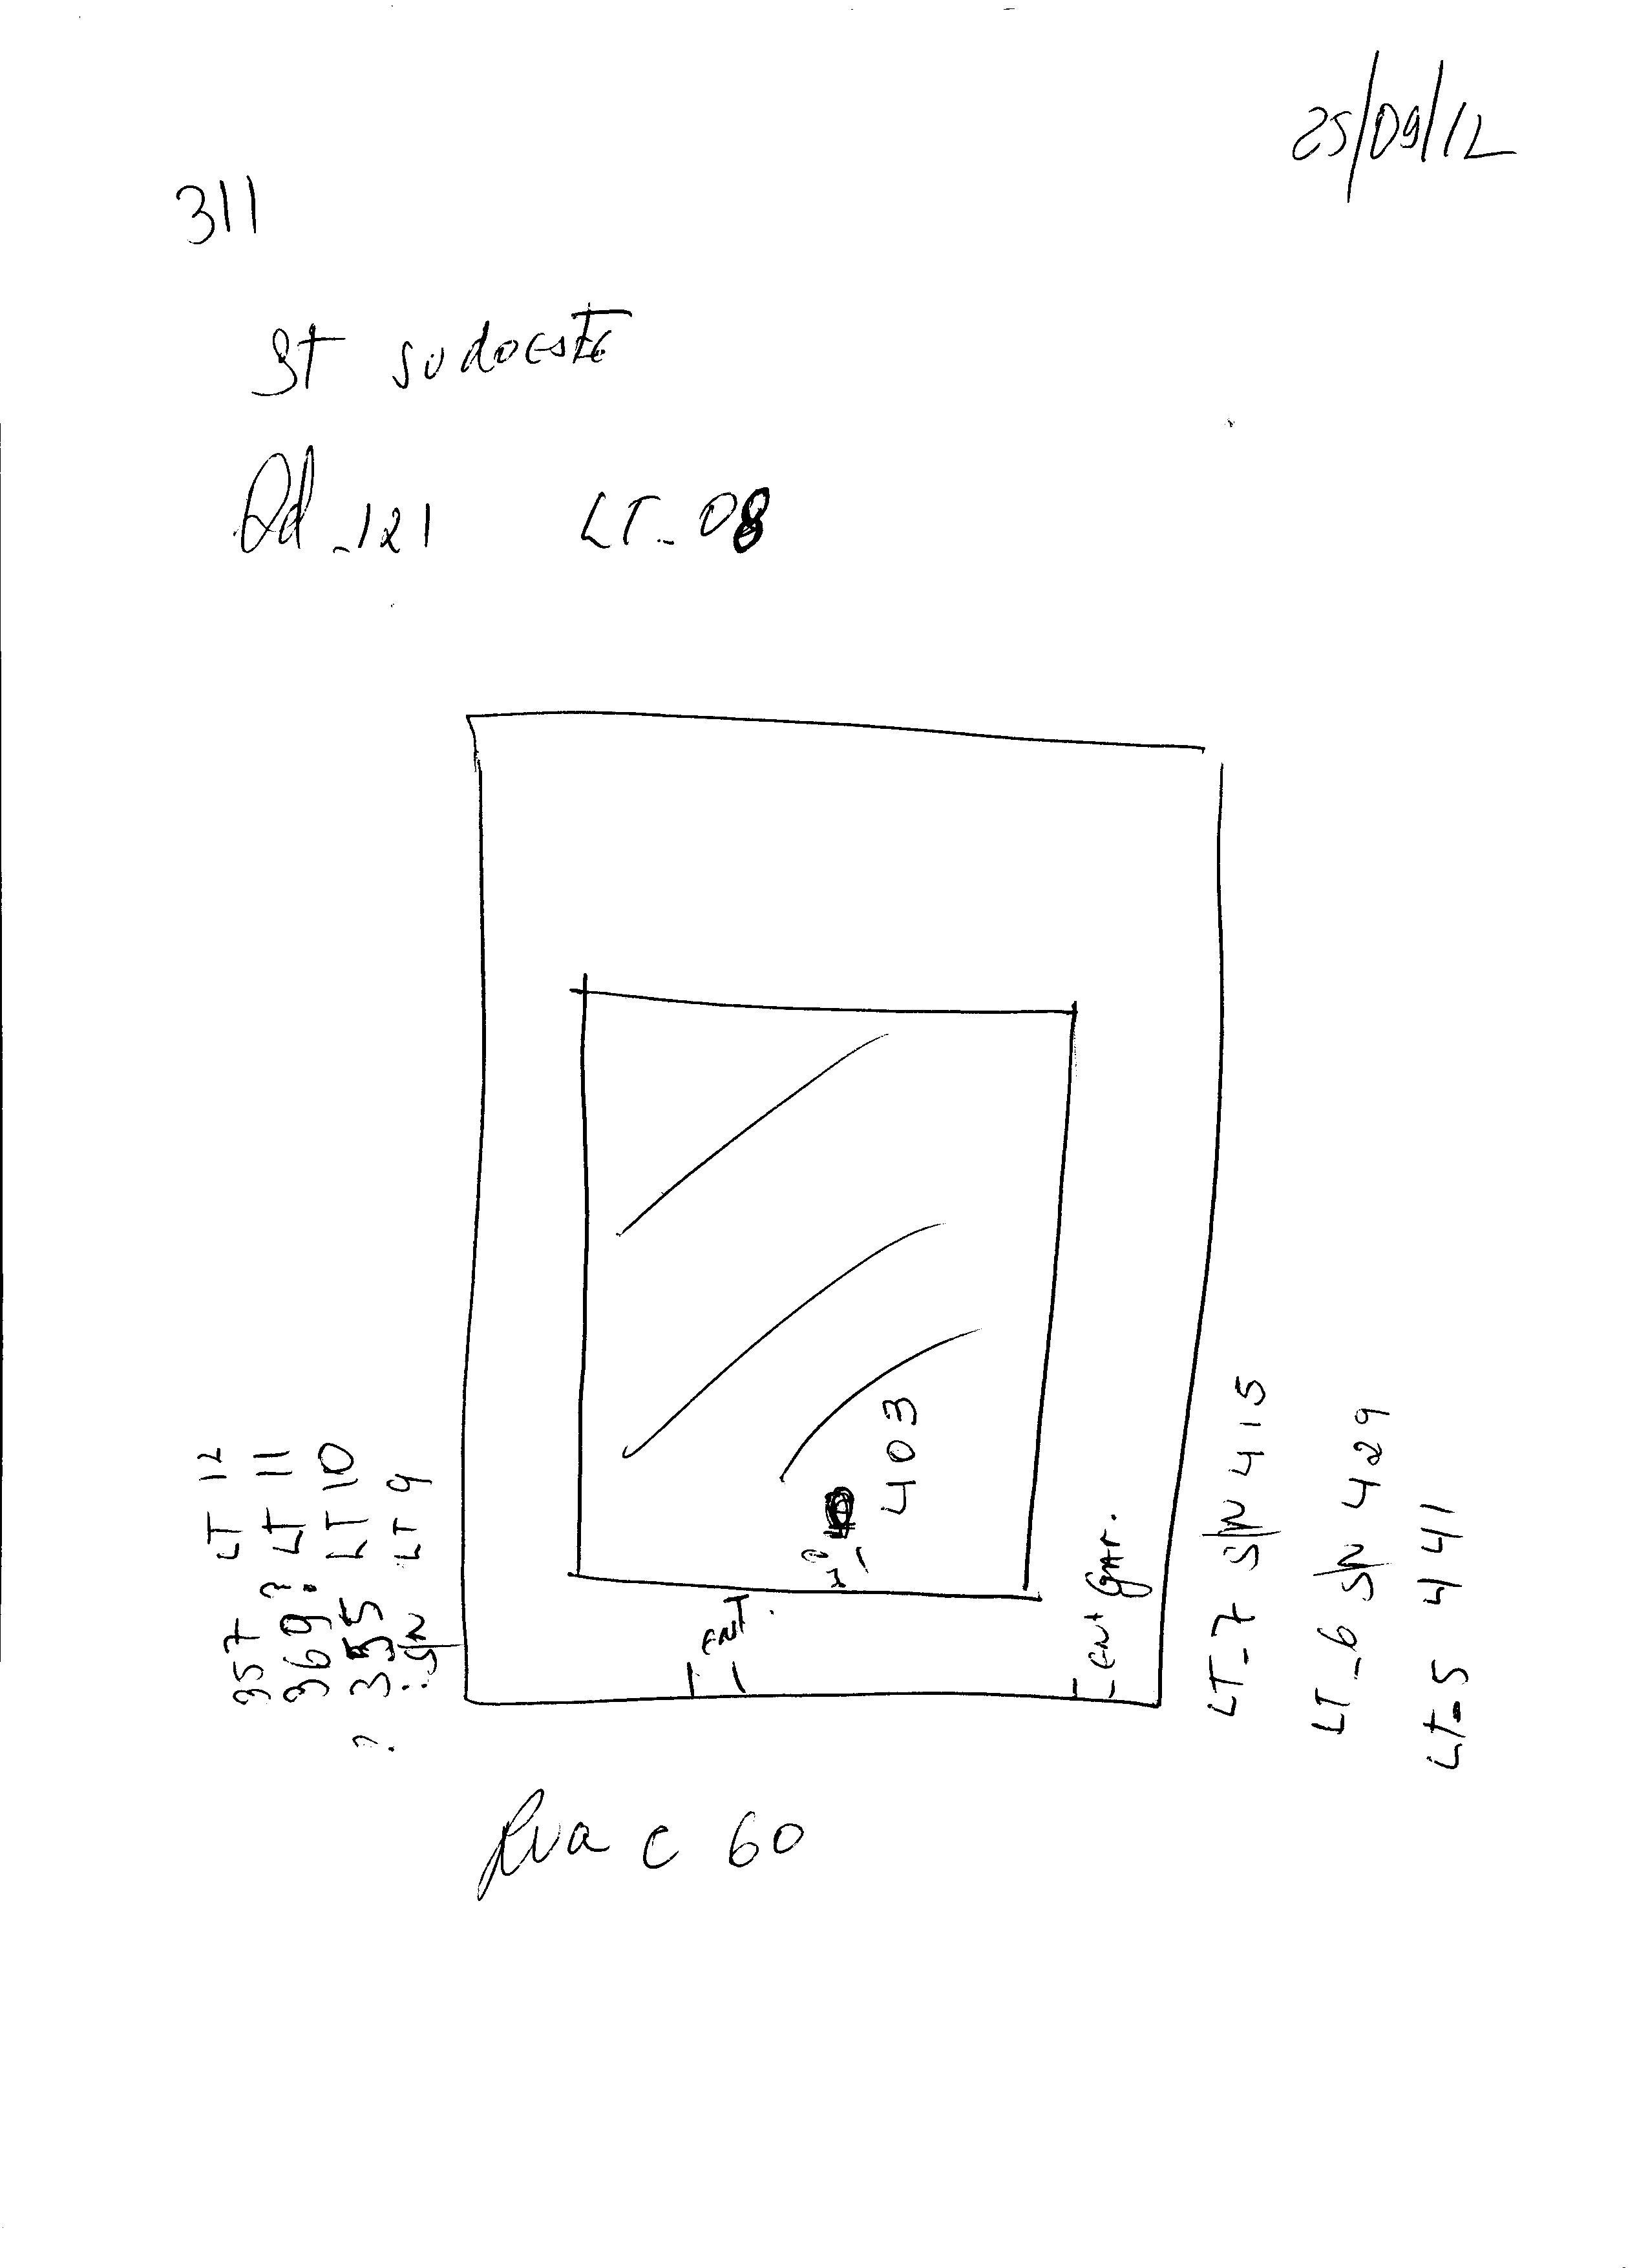 25/09/12
311
St sudoeste
Qd_121 LT_08
403
Nº
ENT.
Ent Gar.
357 LT 12
369? LT 11
? 355 LT 10
S/N LT 9
LT_7 S/N 415
LT_6 S/N 429
Lt_5 441
Rua C 60